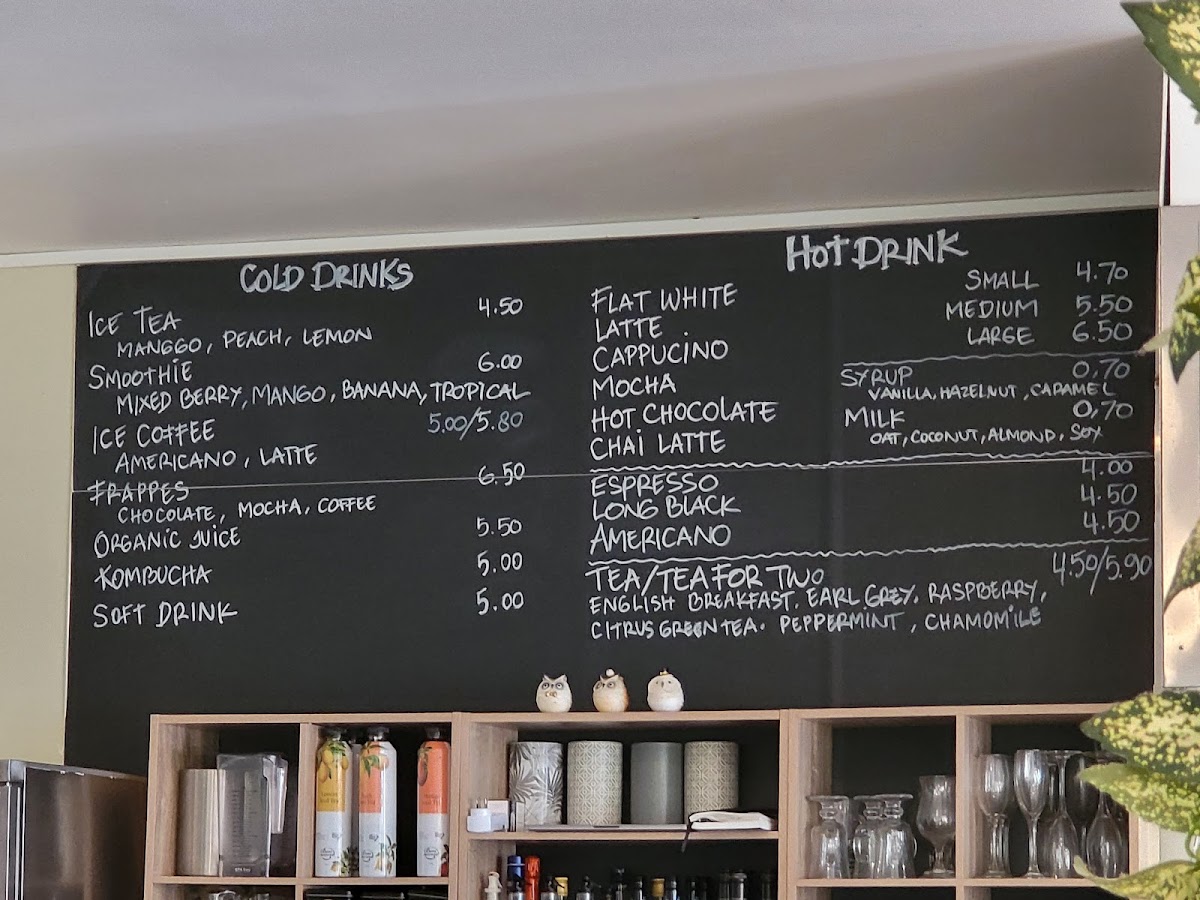 COLD DRINKS
ICE TEA 4.50
MANGGO, PEACH, LEMON
SMOOTHIE 6.00
MIXED BERRY, MANGO, BANANA, TROPICAL
ICE COFFEE 5.00/5.80
AMERICANO, LATTE
FRAPPES 6.50
CHOCOLATE, MOCHA, COFFEE
ORGANIC JUICE 5.50
KOMBUCHA 5.00
SOFT DRINK 5.00
HOT DRINK
FLAT WHITE
LATTE
CAPPUCINO
MOCHA
HOT CHOCOLATE
CHAI LATTE
SMALL 4.70
MEDIUM 5.50
LARGE 6.50
SYRUP 0,70
VANILLA, HAZELNUT, CARAMEL
MILK 0,70
OAT, COCONUT, ALMOND, SOY
ESPRESSO 4.00
LONG BLACK 4.50
AMERICANO 4.50
TEA/TEA FOR TWO 4.50/5.90
ENGLISH BREAKFAST, EARL GREY, RASPBERRY,
CITRUS GREEN TEA. PEPPERMINT, CHAMOMILE